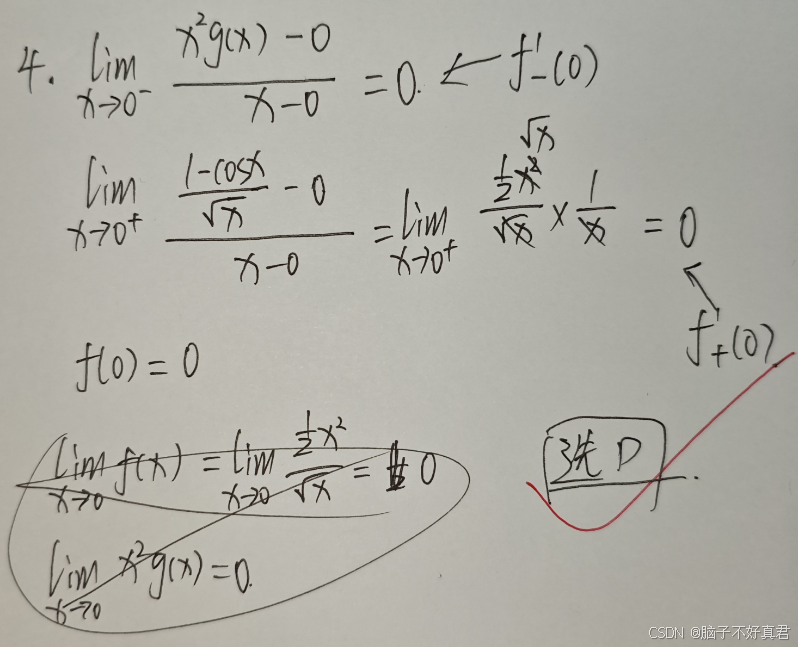 4. lim x→0⁻ (x²g(x) - 0)/(x - 0) = 0. ← f'₋(0)
lim x→0⁺ ((1-cosx)/√x - 0)/(x - 0) = lim x→0⁺ (½x²)/√x × 1/x = 0
√x
f'₊(0)
f(0) = 0
lim x→0 f(x) = lim x→0 (½x²)/√x = 0
lim x→0 x²g(x) = 0.
选 D.
CSDN @脑子不好真君